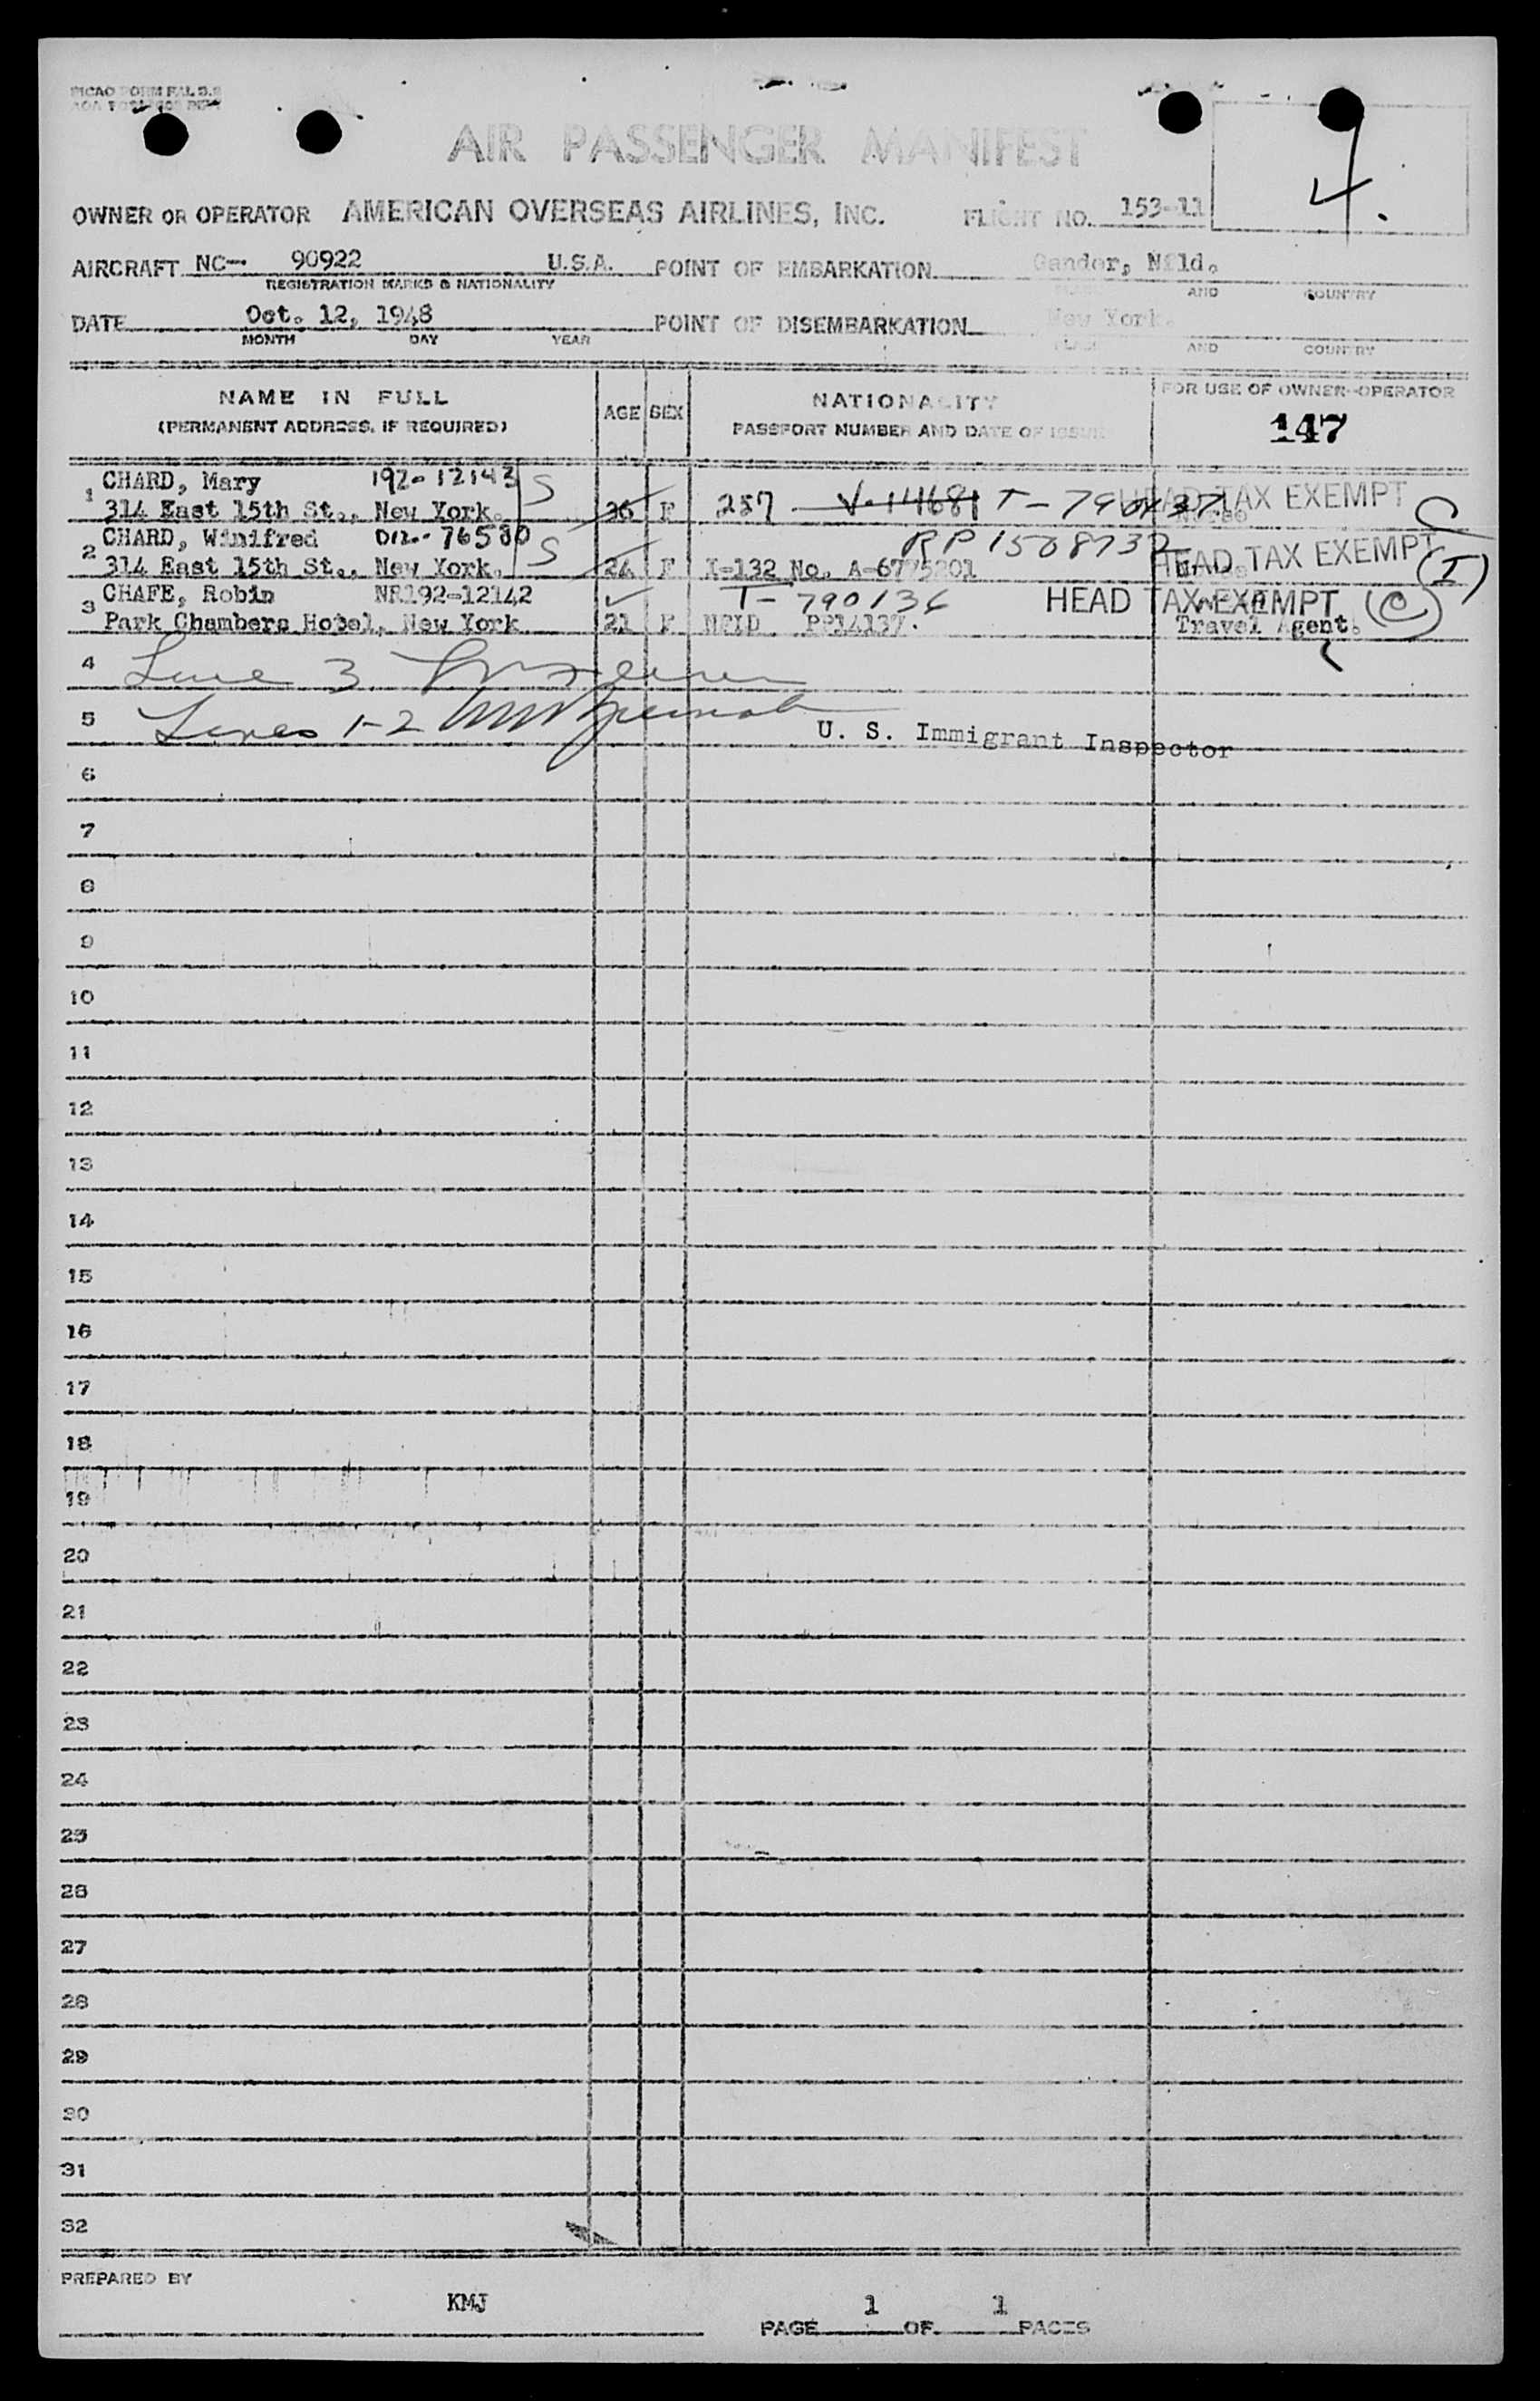 PICAO FORM FAL D.2
AIR PASSENGER MANIFEST
4.
OWNER OR OPERATOR AMERICAN OVERSEAS AIRLINES, INC. FLIGHT NO. 153-11
AIRCRAFT NC- 90922 U.S.A. POINT OF EMBARKATION Gander, Nfld.
REGISTRATION MARKS & NATIONALITY AND COUNTRY
DATE Oct. 12, 1948 POINT OF DISEMBARKATION New York.
MONTH DAY YEAR PLACE AND COUNTRY
NAME IN FULL
(PERMANENT ADDRESS, IF REQUIRED)
AGE SEX
NATIONALITY
PASSPORT NUMBER AND DATE OF ISSUE
FOR USE OF OWNER-OPERATOR
147
1 CHARD, Mary 192-12143 S
314 East 15th St., New York. 36 F 257 V-14681 T-790137 HEAD TAX EXEMPT C
2 CHARD, Winifred 76580 S RP 1508732
314 East 15th St., New York. 24 F I-132 No. A-6775201 HEAD TAX EXEMPT (I)
3 CHAFE, Robin NR192-12142 T-790136 HEAD TAX EXEMPT (C)
Park Chambers Hotel, New York 21 F NFLD PP14137. Travel Agent.
4 Line 3
5 Lines 1-2
U. S. Immigrant Inspector
6
7
8
9
10
11
12
13
14
15
16
17
18
19
20
21
22
23
24
25
26
27
28
29
30
31
32
PREPARED BY
KMJ
PAGE 1 OF 1 PAGES